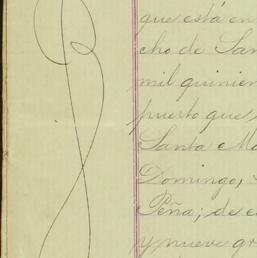 que está en
cho de San
mil quinien
puerto que
Santa Ma
Domingo,
Peña; de e
y nueve gr